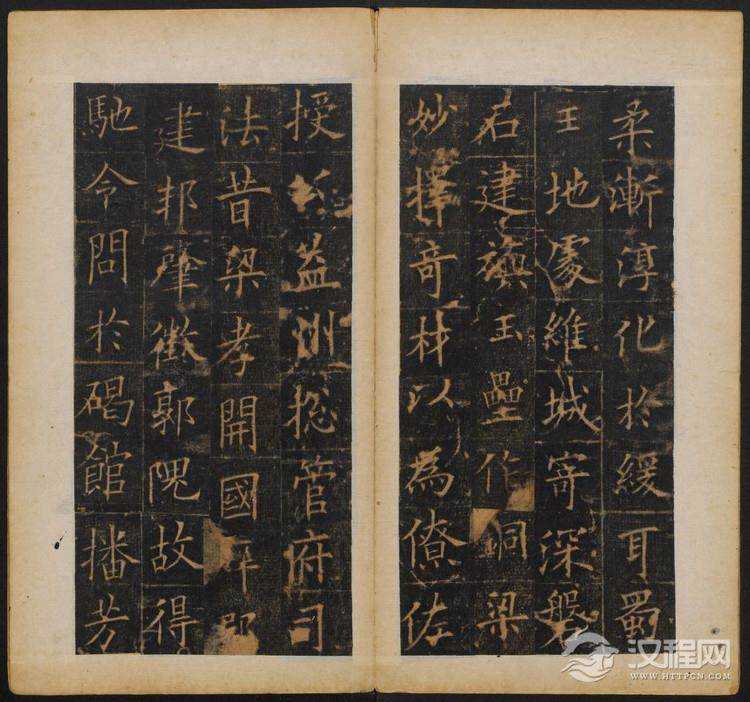 柔漸淳化於緩耳蜀
王地處維城寄深磐
石建旟玉壘作銅梁
妙擇奇材以為僚佐
授公益州揔管府司
法昔梁孝開國
建邦肇徵郭隗故得
馳令問於碣館播芳
汉程网
WWW.HTTPCN.COM